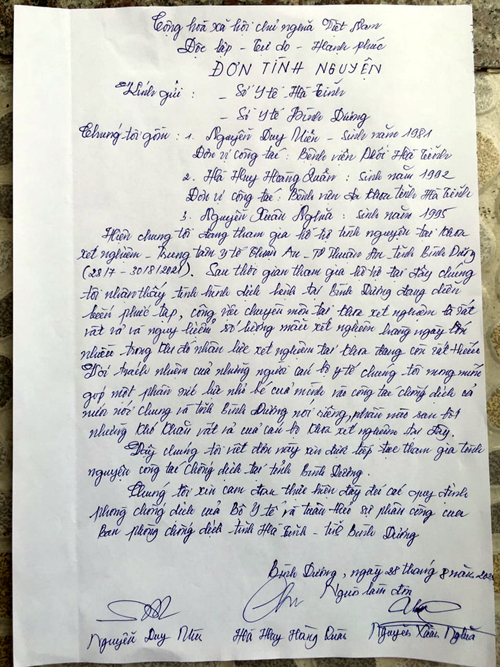 Cộng hoà xã hội chủ nghĩa Việt Nam
Độc lập - Tự do - Hạnh phúc
ĐƠN TÌNH NGUYỆN
Kính gửi : - Sở Y tế Hà Tĩnh
- Sở Y tế Bình Dương
Chúng tôi gồm : 1. Nguyễn Duy - Sinh năm 1981
Đơn vị công tác : Bệnh viện Phổi Hà Tĩnh
2. Hà Huy Hoàng Quân : sinh năm 1992
Đơn vị công tác : Bệnh viện đa khoa tỉnh Hà Tĩnh
3. Nguyễn Xuân Nghĩa : sinh năm 1995
Hiện chúng tôi đang tham gia hỗ trợ tình nguyện tại khoa
xét nghiệm - Trung tâm y tế Thuận An - TP Thuận An - tỉnh Bình Dương
(28/7 - 30/8/2021). Sau thời gian tham gia hỗ trợ tại đây chúng
tôi nhận thấy tình hình dịch bệnh tại Bình Dương đang diễn
biến phức tạp, công việc chuyên môn tại khoa xét nghiệm là rất
vất vả và nguy hiểm, số lượng mẫu xét nghiệm hàng ngày
nhiều trong khi đó nhân lực xét nghiệm tại khoa đang còn rất thiếu
Với trách nhiệm của những người cán bộ y tế chúng tôi mong muốn
góp một phần sức lực nhỏ bé của mình vào công tác chống dịch cả
nước nói chung và tỉnh Bình Dương nói riêng, phần nào san bớt
những khó khăn vất vả của cán bộ khoa xét nghiệm tại đây.
Vậy chúng tôi viết đơn này xin được tiếp tục tham gia tình
nguyện công tác chống dịch tại tỉnh Bình Dương.
Chúng tôi xin cam đoan thực hiện đầy đủ các quy định
phòng chống dịch của Bộ Y tế và tuân theo sự phân công của
Ban phòng chống dịch tỉnh Hà Tĩnh - tỉnh Bình Dương
Bình Dương, ngày 28 tháng 8 năm
Người làm đơn
Nguyễn Duy Hà Huy Hoàng Quân Nguyễn Xuân Nghĩa